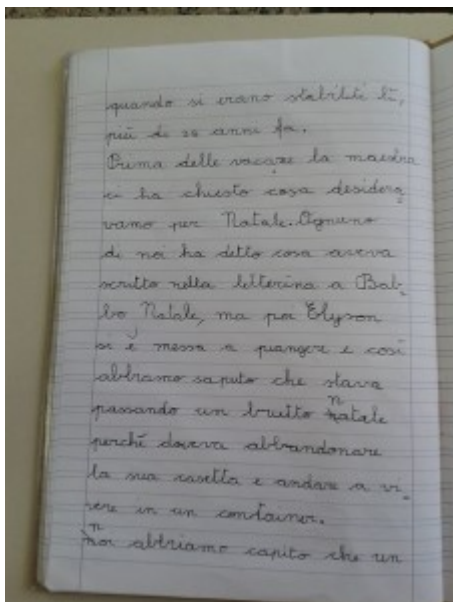 quando si erano stabiliti lì,
più di 20 anni fa.
Prima delle vacaze la maestra
ci ha chiesto cosa desidera
vamo per Natale. Ognuno
di noi ha detto cosa aveva
scritto nella letterina a Bab
bo Natale, ma poi Elyson
si è messa a piangere e così
abbiamo saputo che stava
passando un brutto natale
perché doveva abbandonare
la sua casetta e andare a vi
vere in un container.
noi abbiamo capito che un